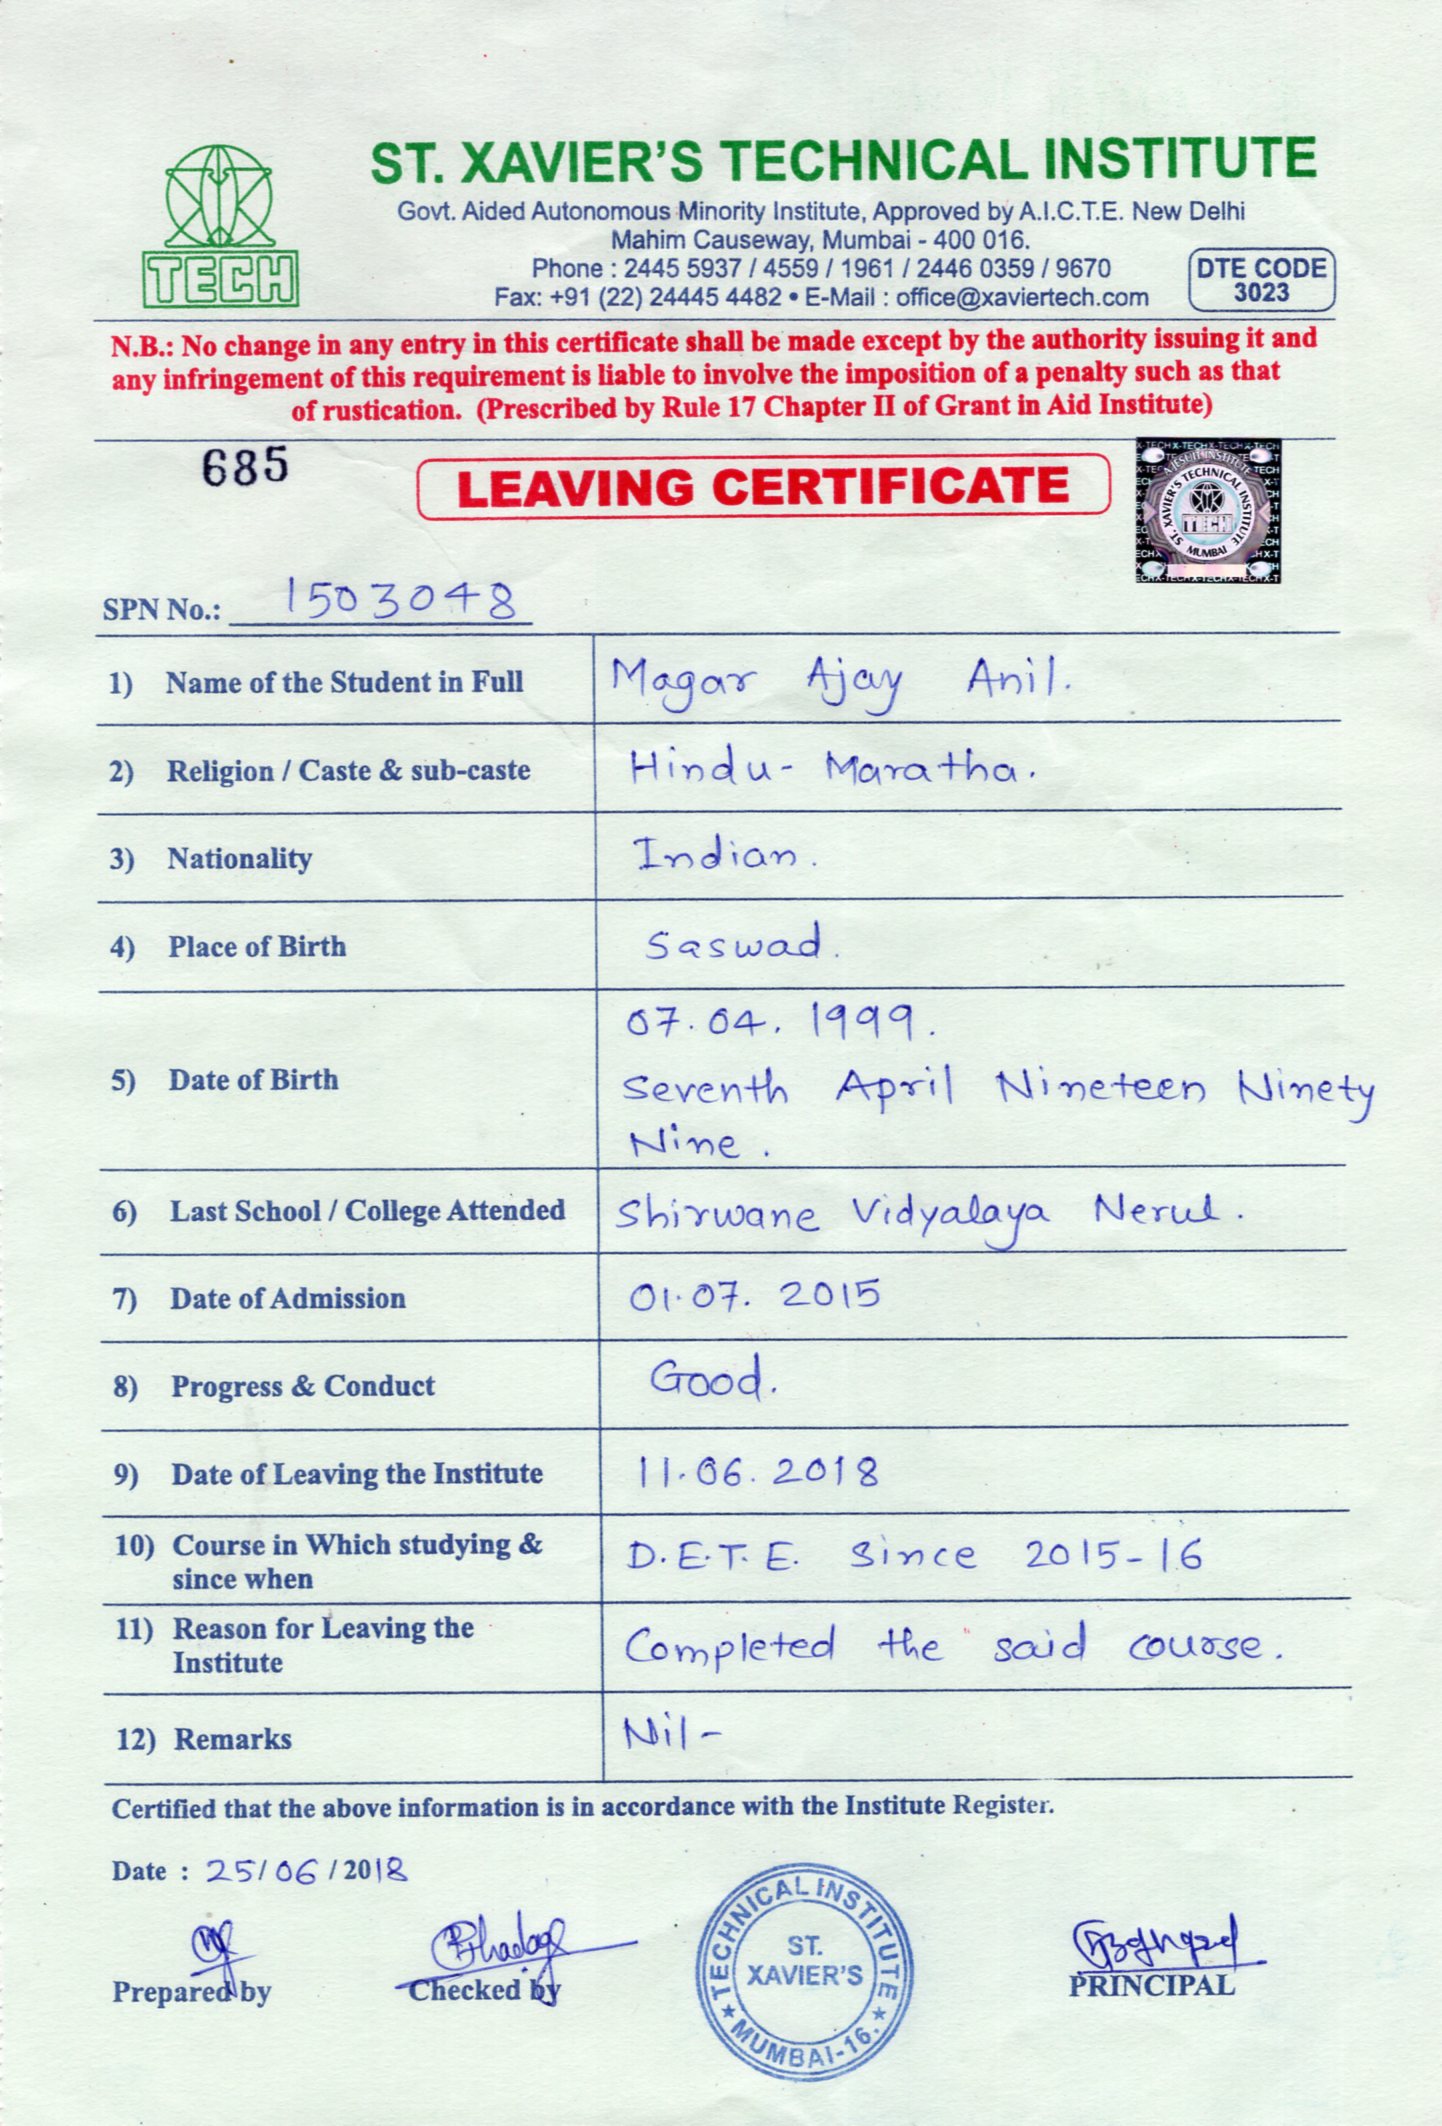 ST. XAVIER'S TECHNICAL INSTITUTE
Govt. Aided Autonomous Minority Institute, Approved by A.I.C.T.E. New Delhi
Mahim Causeway, Mumbai - 400 016.
Phone : 2445 5937 / 4559 / 1961 / 2446 0359 / 9670
Fax: +91 (22) 24445 4482 • E-Mail : office@xaviertech.com
TECH
DTE CODE
3023
N.B.: No change in any entry in this certificate shall be made except by the authority issuing it and
any infringement of this requirement is liable to involve the imposition of a penalty such as that
of rustication. (Prescribed by Rule 17 Chapter II of Grant in Aid Institute)
685
LEAVING CERTIFICATE
A JESUIT INSTITUTE
ST. XAVIER'S TECHNICAL INSTITUTE
TECH
MUMBAI
SPN No.: 1503048
1) Name of the Student in Full Magar Ajay Anil.
2) Religion / Caste & sub-caste Hindu - Maratha.
3) Nationality Indian.
4) Place of Birth Saswad.
5) Date of Birth 07.04.1999.
Seventh April Nineteen Ninety
Nine.
6) Last School / College Attended Shirwane Vidyalaya Nerul.
7) Date of Admission 01.07.2015
8) Progress & Conduct Good.
9) Date of Leaving the Institute 11.06.2018
10) Course in Which studying & D.E.T.E. Since 2015-16
since when
11) Reason for Leaving the Completed the said course.
Institute
12) Remarks Nil -
Certified that the above information is in accordance with the Institute Register.
Date : 25/06/2018
Prepared by
Checked by
TECHNICAL INSTITUTE
ST.
XAVIER'S
★ MUMBAI-16. ★
PRINCIPAL